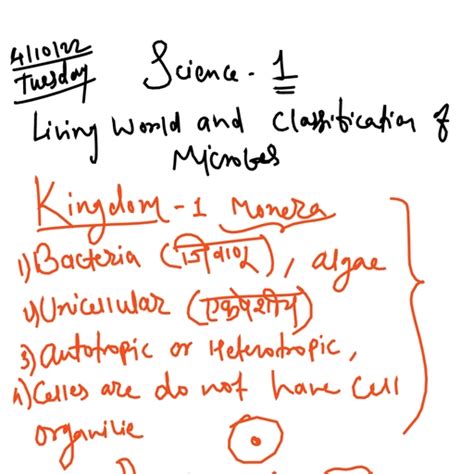 4/10/22
Tuesday
Science - 1
Living World and Classification of
Microbes
Kingdom - 1 Monera
1) Bacteria (जिवाणू), algae
2) Unicellular (एकपेशीय)
3) Autotropic or Heterotropic,
4) Celles are do not have cell
organilie